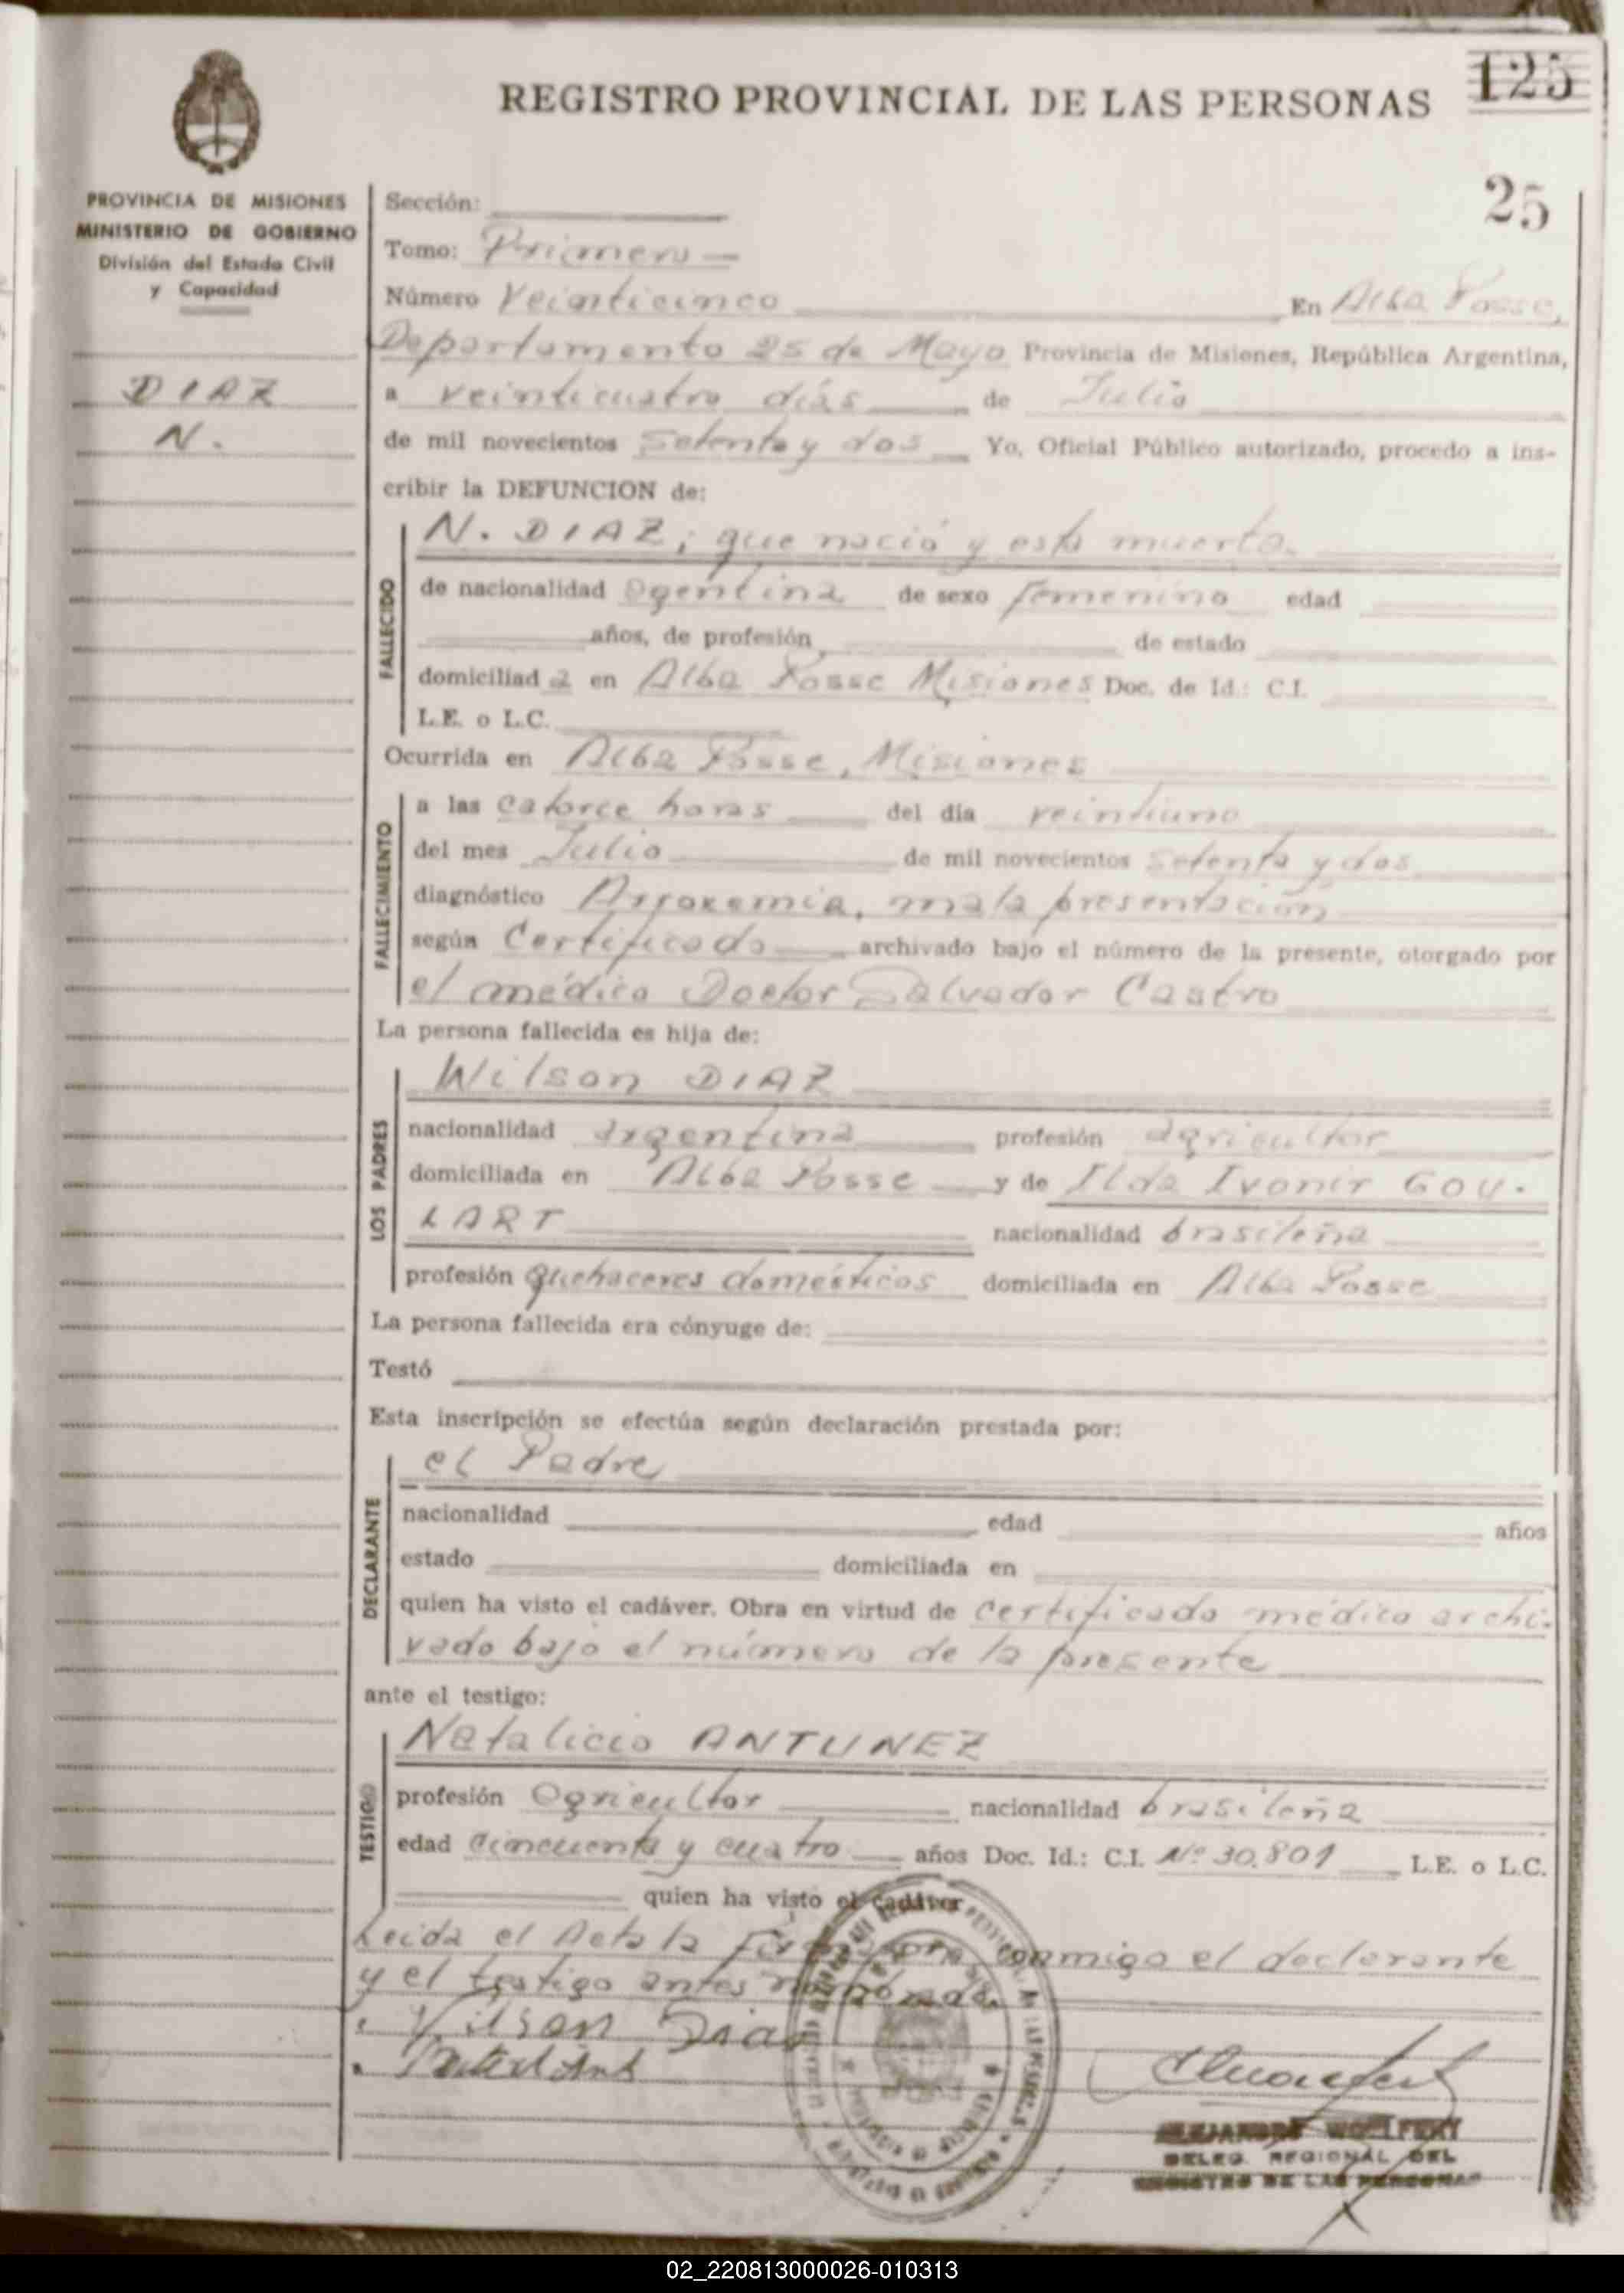 REGISTRO PROVINCIAL DE LAS PERSONAS
125
25
PROVINCIA DE MISIONES
MINISTERIO DE GOBIERNO
División del Estado Civil
y Capacidad
DIAZ
N.
Sección:
Tomo: Primero
Número Veinticinco En Alba Posse,
Departamento 25 de Mayo Provincia de Misiones, República Argentina,
a veinticuatro días de Julio
de mil novecientos Setenta y dos Yo, Oficial Público autorizado, procedo a ins-
cribir la DEFUNCION de:
FALLECIDO
N. DIAZ, que nació y está muerta.
de nacionalidad Argentina de sexo femenino edad
años, de profesión de estado
domiciliad a en Alba Posse Misiones Doc. de Id.: C.I.
L.E. o L.C.
Ocurrida en Alba Posse, Misiones
FALLECIMIENTO
a las catorce horas del día veintiuno
del mes Julio de mil novecientos setenta y dos
diagnóstico mala presentación
según Certificado archivado bajo el número de la presente, otorgado por
el médico Doctor Salvador Castro
La persona fallecida es hija de:
LOS PADRES
Wilson DIAZ
nacionalidad argentina profesión agricultor
domiciliada en Alba Posse y de Ilda Ivonir GOU-
LART nacionalidad brasileña
profesión quehaceres domésticos domiciliada en Alba Posse
La persona fallecida era cónyuge de:
Testó
Esta inscripción se efectúa según declaración prestada por:
DECLARANTE
el Padre
nacionalidad edad años
estado domiciliada en
quien ha visto el cadáver. Obra en virtud de certificado médico archi-
vado bajo el número de la presente
ante el testigo:
TESTIGO
Natalicio ANTUNEZ
profesión agricultor nacionalidad brasileña
edad cincuenta y cuatro años Doc. Id.: C.I. Nº 30.801 L.E. o L.C.
quien ha visto el cadáver
Leida el Acta la conmigo el declarante
y el testigo antes nombrados
Vilson Dias
DELEG. REGIONAL DEL
REGISTRO DE LAS PERSONAS
02_220813000026-010313